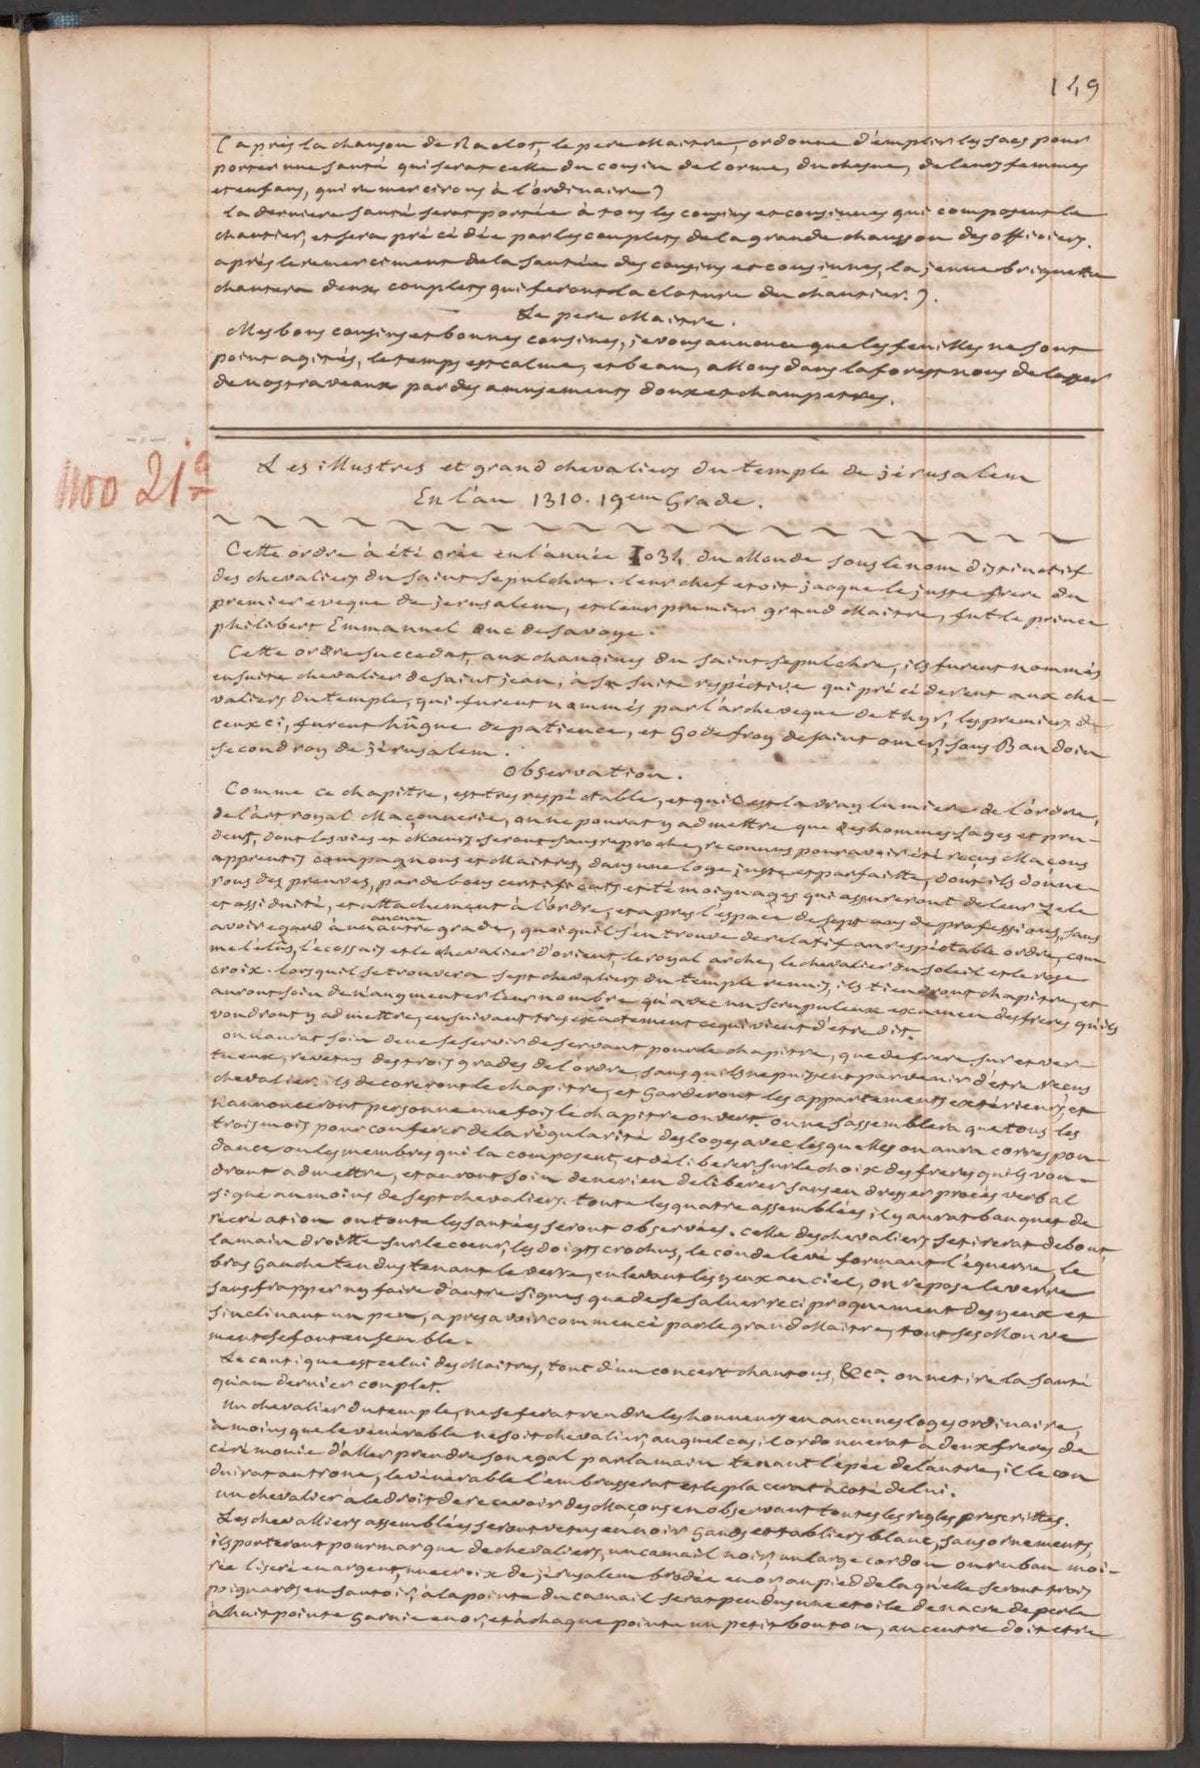 149
(après la chanson de Raclot, le pere Maitre, ordonne d'emplir les sacs pour
porter une santé qui serat celle du cousin de lorme, du chesne, de leurs femmes
et enfans, qui remercirons à l'ordinaire)
la derniere santé serat portée à tous les cousins et cousinnes qui composent le
chantier, et sera précédée par les couplets de la grande chansson des officiers.
après le remerciment de la santée des cousins et cousinnes, la jeune briquette
chantera deux couplets qui feront la cloture du chantier.).
Le pere Maitre.
Mes bons cousins et bonnes cousines, je vous annonce que les feuilles ne sont
point agités, le temps est calme, et beau, allons dans la forest nous delasser
de nos traveaux par des amusements doux et champetres.
N00 21
Les illustres et grand chevaliers du temple de jérusalem
En l'an 1310. 19em Grade.
Cette ordre à été crée en l'année du Monde sous le nom distinctif
des chevaliers du saint sepulchre. leur chef etoit jacque le juste frere du
premier eveque de jerusalem, et leur premier grand Maitre, fut le prince
philibert Emmanuel duc de savoye.
Cette ordre succedat, aux chanoines du saint sepulchre, ils furent nommés
ensuite chevalier de saint jean, à sa suite respéctive qui précéderent aux che-
valiers du temple, qui furent nommés par l'archeveque de thyr, les premiers de
ceux ci, furent hûgue de patience, et Godefroy de saint omer, sous Baudoin
second roy de jérusalem.
Observation.
Comme ce chapitre, est tres respéctable, et qu'il est la vray lumiere de l'ordre,
de l'art royal Maçonnerie, on ne pourat y admettre que des hommes sages et pru-
dents, dont les vies et Mœurs seront sans reproche, reconnus pour avoir été recus Maçons
apprentis compagnons et Maitres, dans une loge juste et parfaitte, dont ils donne-
rons des preuves, par de bons certificats et témoignages qui assureront de leur zele
et assiduité, et attachement à l'ordre, et apres l'espace de sept ans de professions, sans
avoir egard à aucun autre grade, quoiqu'il s'en trouve de relatif au respéctable ordre, com
me l'élûs, l'ecossais et le chevalier d'orient, le royal arche, le chevalier du soleil et le rose
croix. lorsqu'il se trouvera sept chevaliers du temple reunis, ils tiendront chapitre, et
auront soin de n'augmenter leur nombre qu'avec un scrupuleux examen des freres qu'ils
voudront y admettre, en suivant tres exactement ce qui vient d'etre dit.
on aurat soin de ne se servir de servant pour le chapitre, que de frere sur et ver-
tueux, revetus des trois grades de l'ordre, sans qu'ils ne puissent parvenir d'etre recus
chevalier. ils decoreront le chapitre, et Garderont les appartements extérieurs, et
n'annonceront personne une fois le chapitre ouvert. on ne s'assemblera que tous les
trois mois pour conferer de la régularité des loges avec lesquelles on aura correspon-
dance, ou les membres qui la composent, et déliberer sur le choix des freres qu'ils vou-
dront admettre, et auront soin de ne rien deliberer sans en dresser procès verbal
signé au moins de sept chevaliers. toute les quatre assemblées, il y aurat banquet de
récréation ou toute les santées seront observées. celle des chevaliers se tirerat debout,
la main droitte sur le coeur, les doigts crochus, le coude levé formant l'équerre, le
bras Gauche tendus tenant le verre, en levant les yeux au ciel, on repose le verre
sans frapper ny faire d'autre signes que de se saluer reciproquement des yeux et
s'inclinant un peu, apres avoir commencé par le grand Maitre, tout ses Mouve
ment se font ensemble.
Le cantique est celui des Maitres, tout d'un concert chantons, &ca. on ne tire la santé
qu'au dernier couplet.
Un chevalier du temple, ne se ferat rendre les honneurs en aucunes loges ordinaire,
à moins que le vénérable ne soit chevalier, auquel cas, il ordonnerat à deux freres de
cérémonie d'aller prendre son egal par la main tenant l'épée de l'autre, il le con
duirat au trone, le vénérable l'embrasserat et le placerat à coté de lui.
un chevalier à le droit de recevoir des Maçons en observant toutes les regles prescrittes.
Les chevalliers assemblées seront vetus en noir Gands et tabliers blanc, sans ornements,
ils porteront pour marque de chevaliers, un camail noir, un large cordon ou ruban moi-
rée liseré en argent, une croix de jérusalem brodée en or, au pied de laquelle seront trois
poignards en sautoir, à la pointe du camail serat pendus une etoile de nacre de perle
à huit pointe Garnie en or, et à chaque pointe un petit bouton, au centre doit etre